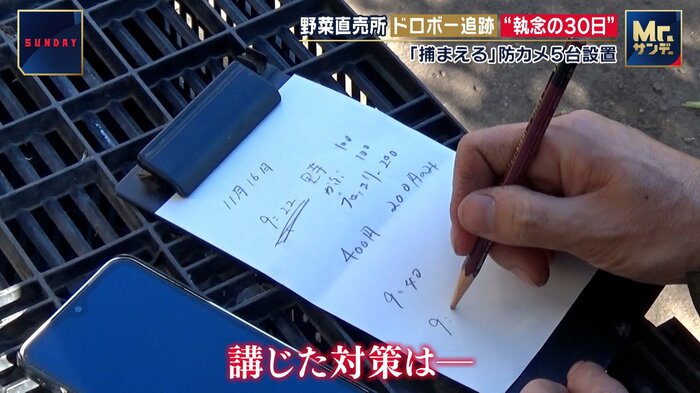 SUNDAY
野菜直売所 ドロボー追跡 “執念の30日”
「捕まえる」防カメ5台設置
Mr.
サンデー
11月16日
9:22
里芋 100
かぶ 100
ブロッコリー 200
400円 200円のみ
9:40
9:
講じた対策は―